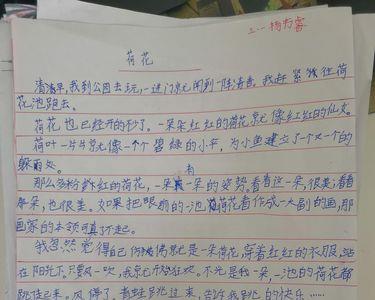 三.一 杨
荷花
清清早,我到公园去玩,一进门就闻到一阵清香。我赶紧往荷
花池跑去。
荷花也已经开的不少了。一朵朵红红的荷花就像红红的仙女。
荷叶一片片就像一个个碧绿的小伞,为小鱼建立了一个又一个的
躲雨处。
那么多粉红的荷花,一朵有一朵的姿势。看看这一朵,很美;看看
那朵,也很美。如果把眼前的一池荷花看作成一大副的画,那
画家的本领真了不起。
我忽然觉得自己仿佛就是一朵荷花,穿着红红的衣服,站
在阳光下,风一吹,我就开始狂欢。不光是我一朵,一池的荷花都
过来,告诉我跳的快乐